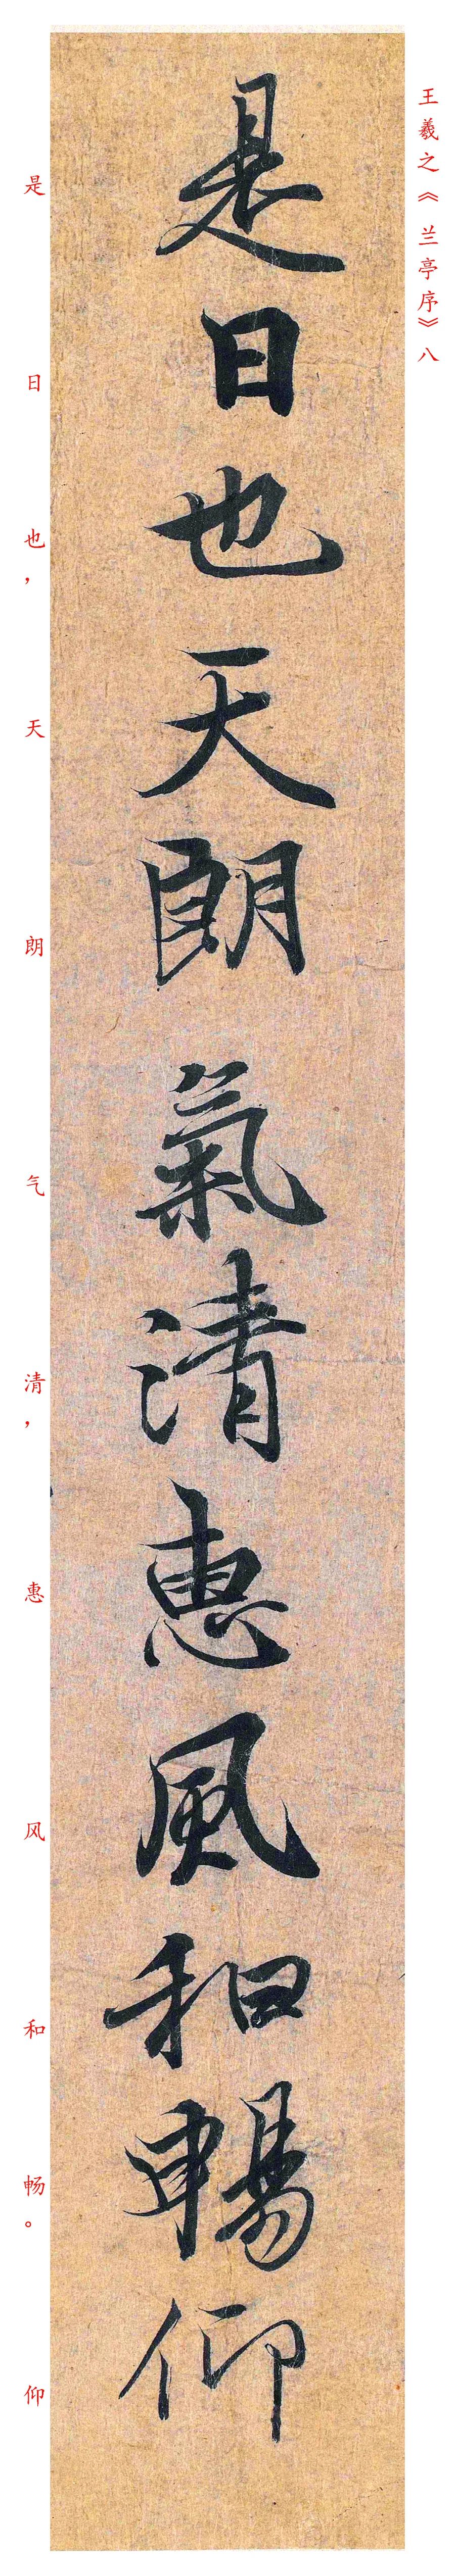 王羲之《兰亭序》八
是日也天朗氣清惠風和暢仰
是日也，天朗气清，惠风和畅。仰